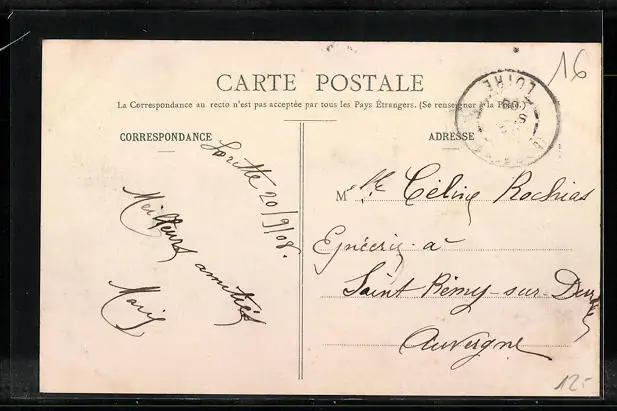 16
CARTE POSTALE
La Correspondance au recto n'est pas acceptée par tous les Pays Étrangers. (Se renseigner à la Poste.)
CORRESPONDANCE
Lorette 20/9/08.
Meilleures amitiés
Marie
ADRESSE
LOIRE
M lle Céline Rochias
Epicerie à
Saint Rémy-sur-Durolle
Auvergne
12.-